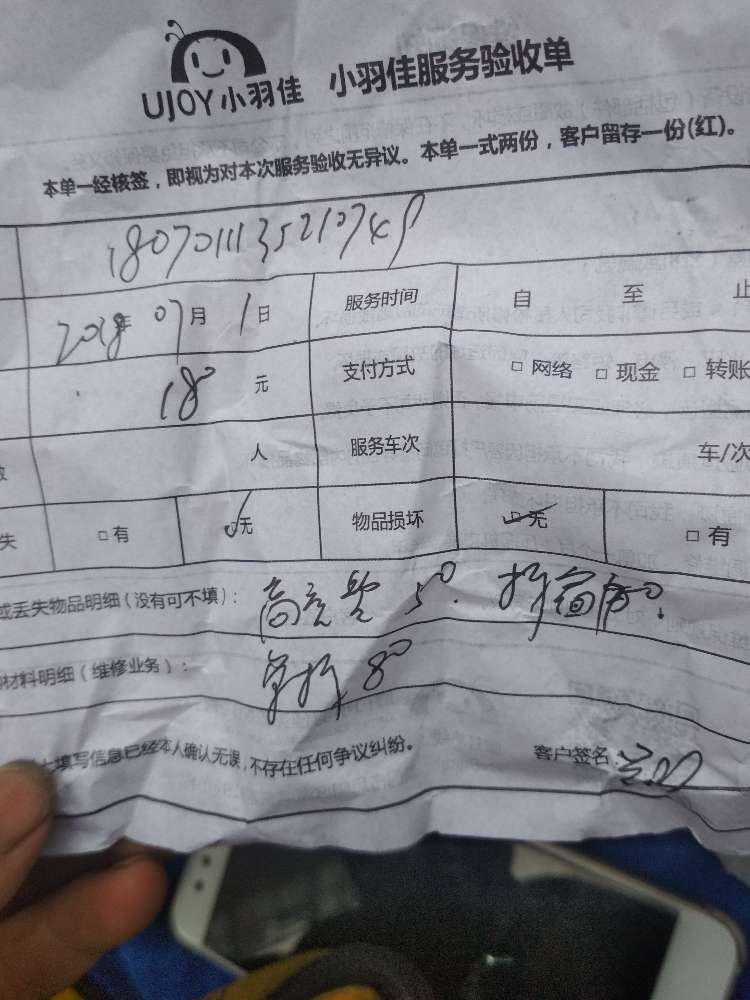 UJOY小羽佳 小羽佳服务验收单
本单一经核签，即视为对本次服务验收无异议。本单一式两份，客户留存一份(红)。
1807011135210749
2018年 07月 1日 服务时间 自 至 止
180 元 支付方式 □ 网络 □ 现金 □ 转账
人 服务车次 车/次
失 □ 有 □无 物品损坏 □ 无 □ 有
或丢失物品明细（没有可不填）： 高空费 50. 拆窗 50.
材料明细（维修业务）： 单拆 80
上填写信息已经本人确认无误，不存在任何争议纠纷。 客户签名: